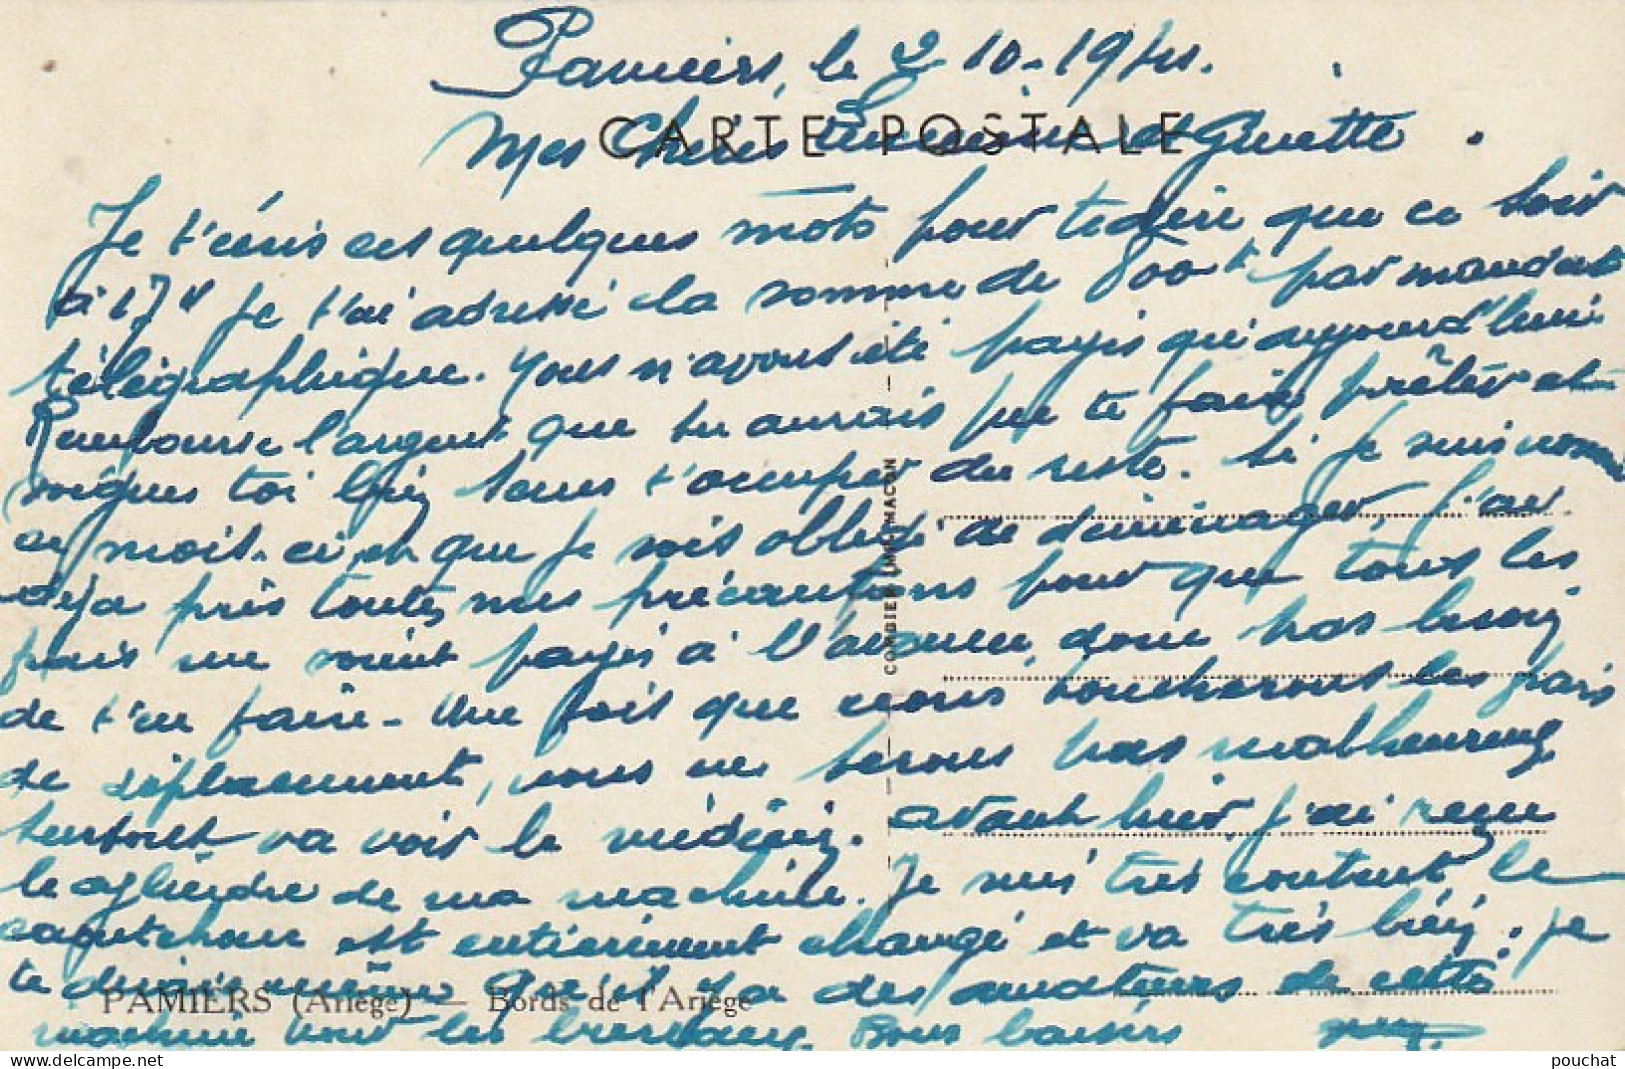 Pamiers, le 2-10-1941.
CARTE POSTALE
Mes Chéris Lucienne et Ginette
Je t'écris ces quelques mots pour te dire que ce soir
à 17h je t'ai adressé la somme de 800f par mandat
télégraphique. Nous n'avons été payés qu'aujourd'hui
Rembourse l'argent que tu aurais pu te faire prêter et
soignes toi bien sans t'occuper du reste. Si je suis nommé
ce mois-ci, et que je sois obligé de déménager, j'ai
déja pris toutes mes précautions pour que tous les
frais me soient payés à l'avance, donc pas besoin
de t'en faire - Une fois que nous toucherons les frais
de déplacement, nous ne serons pas malheureux
surtout va voir le médecin. avant hier, j'ai reçu
le cylindre de ma machine. Je suis très content, le
caoutchouc est entièrement changé et va très bien. je
te dirai même que il y a des amateurs de cette
PAMIERS (Ariège) — Bords de l'Ariège
machine pour les bureaux. Bons baisers
COMBIER IMP. MACON
pouchat